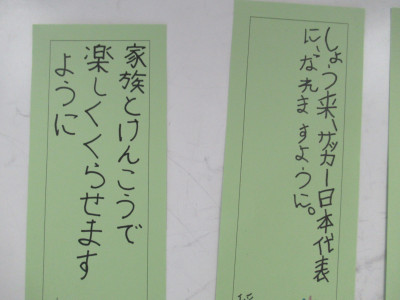 しょう来、サッカー日本代表
に、なれますように。
家族とけんこうで
楽しくくらせます
ように